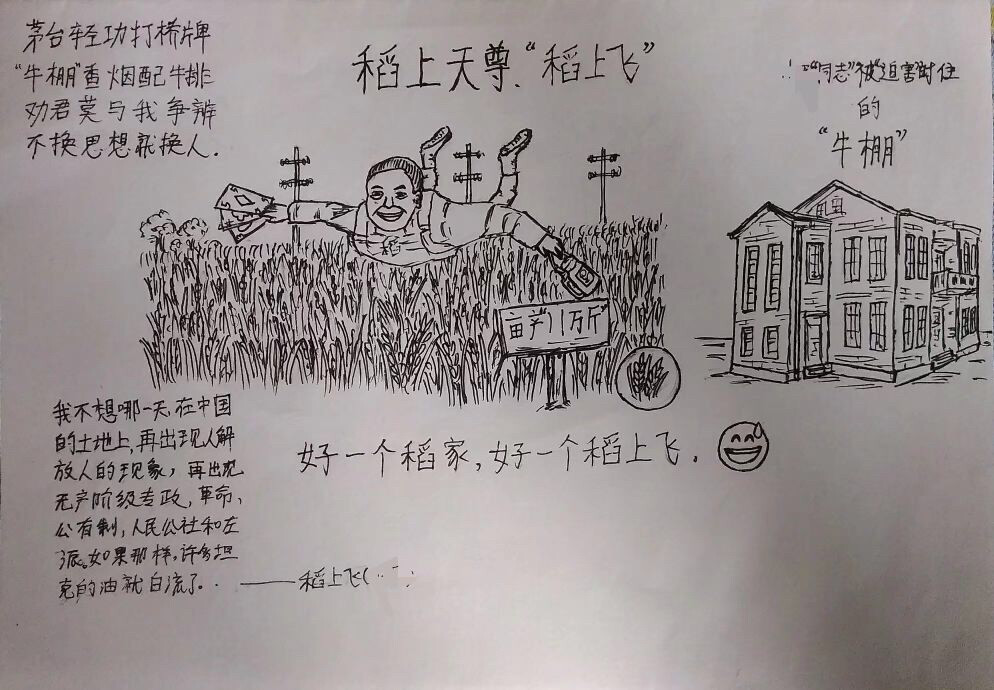 茅台轻功打桥牌
“牛棚”香烟配牛排
劝君莫与我争辩
不换思想就换人.
稻上天尊.“稻上飞”
“同志”被迫害时住
的
“牛棚”
亩产1万斤
我不想哪一天,在中国
的土地上,再出现人解
放人的现象,再出现
无产阶级专政,革命、
公有制,人民公社和左
派。如果那样,许多坦
克的油就白流了。
——稻上飞(
好一个稻家,好一个稻上飞.